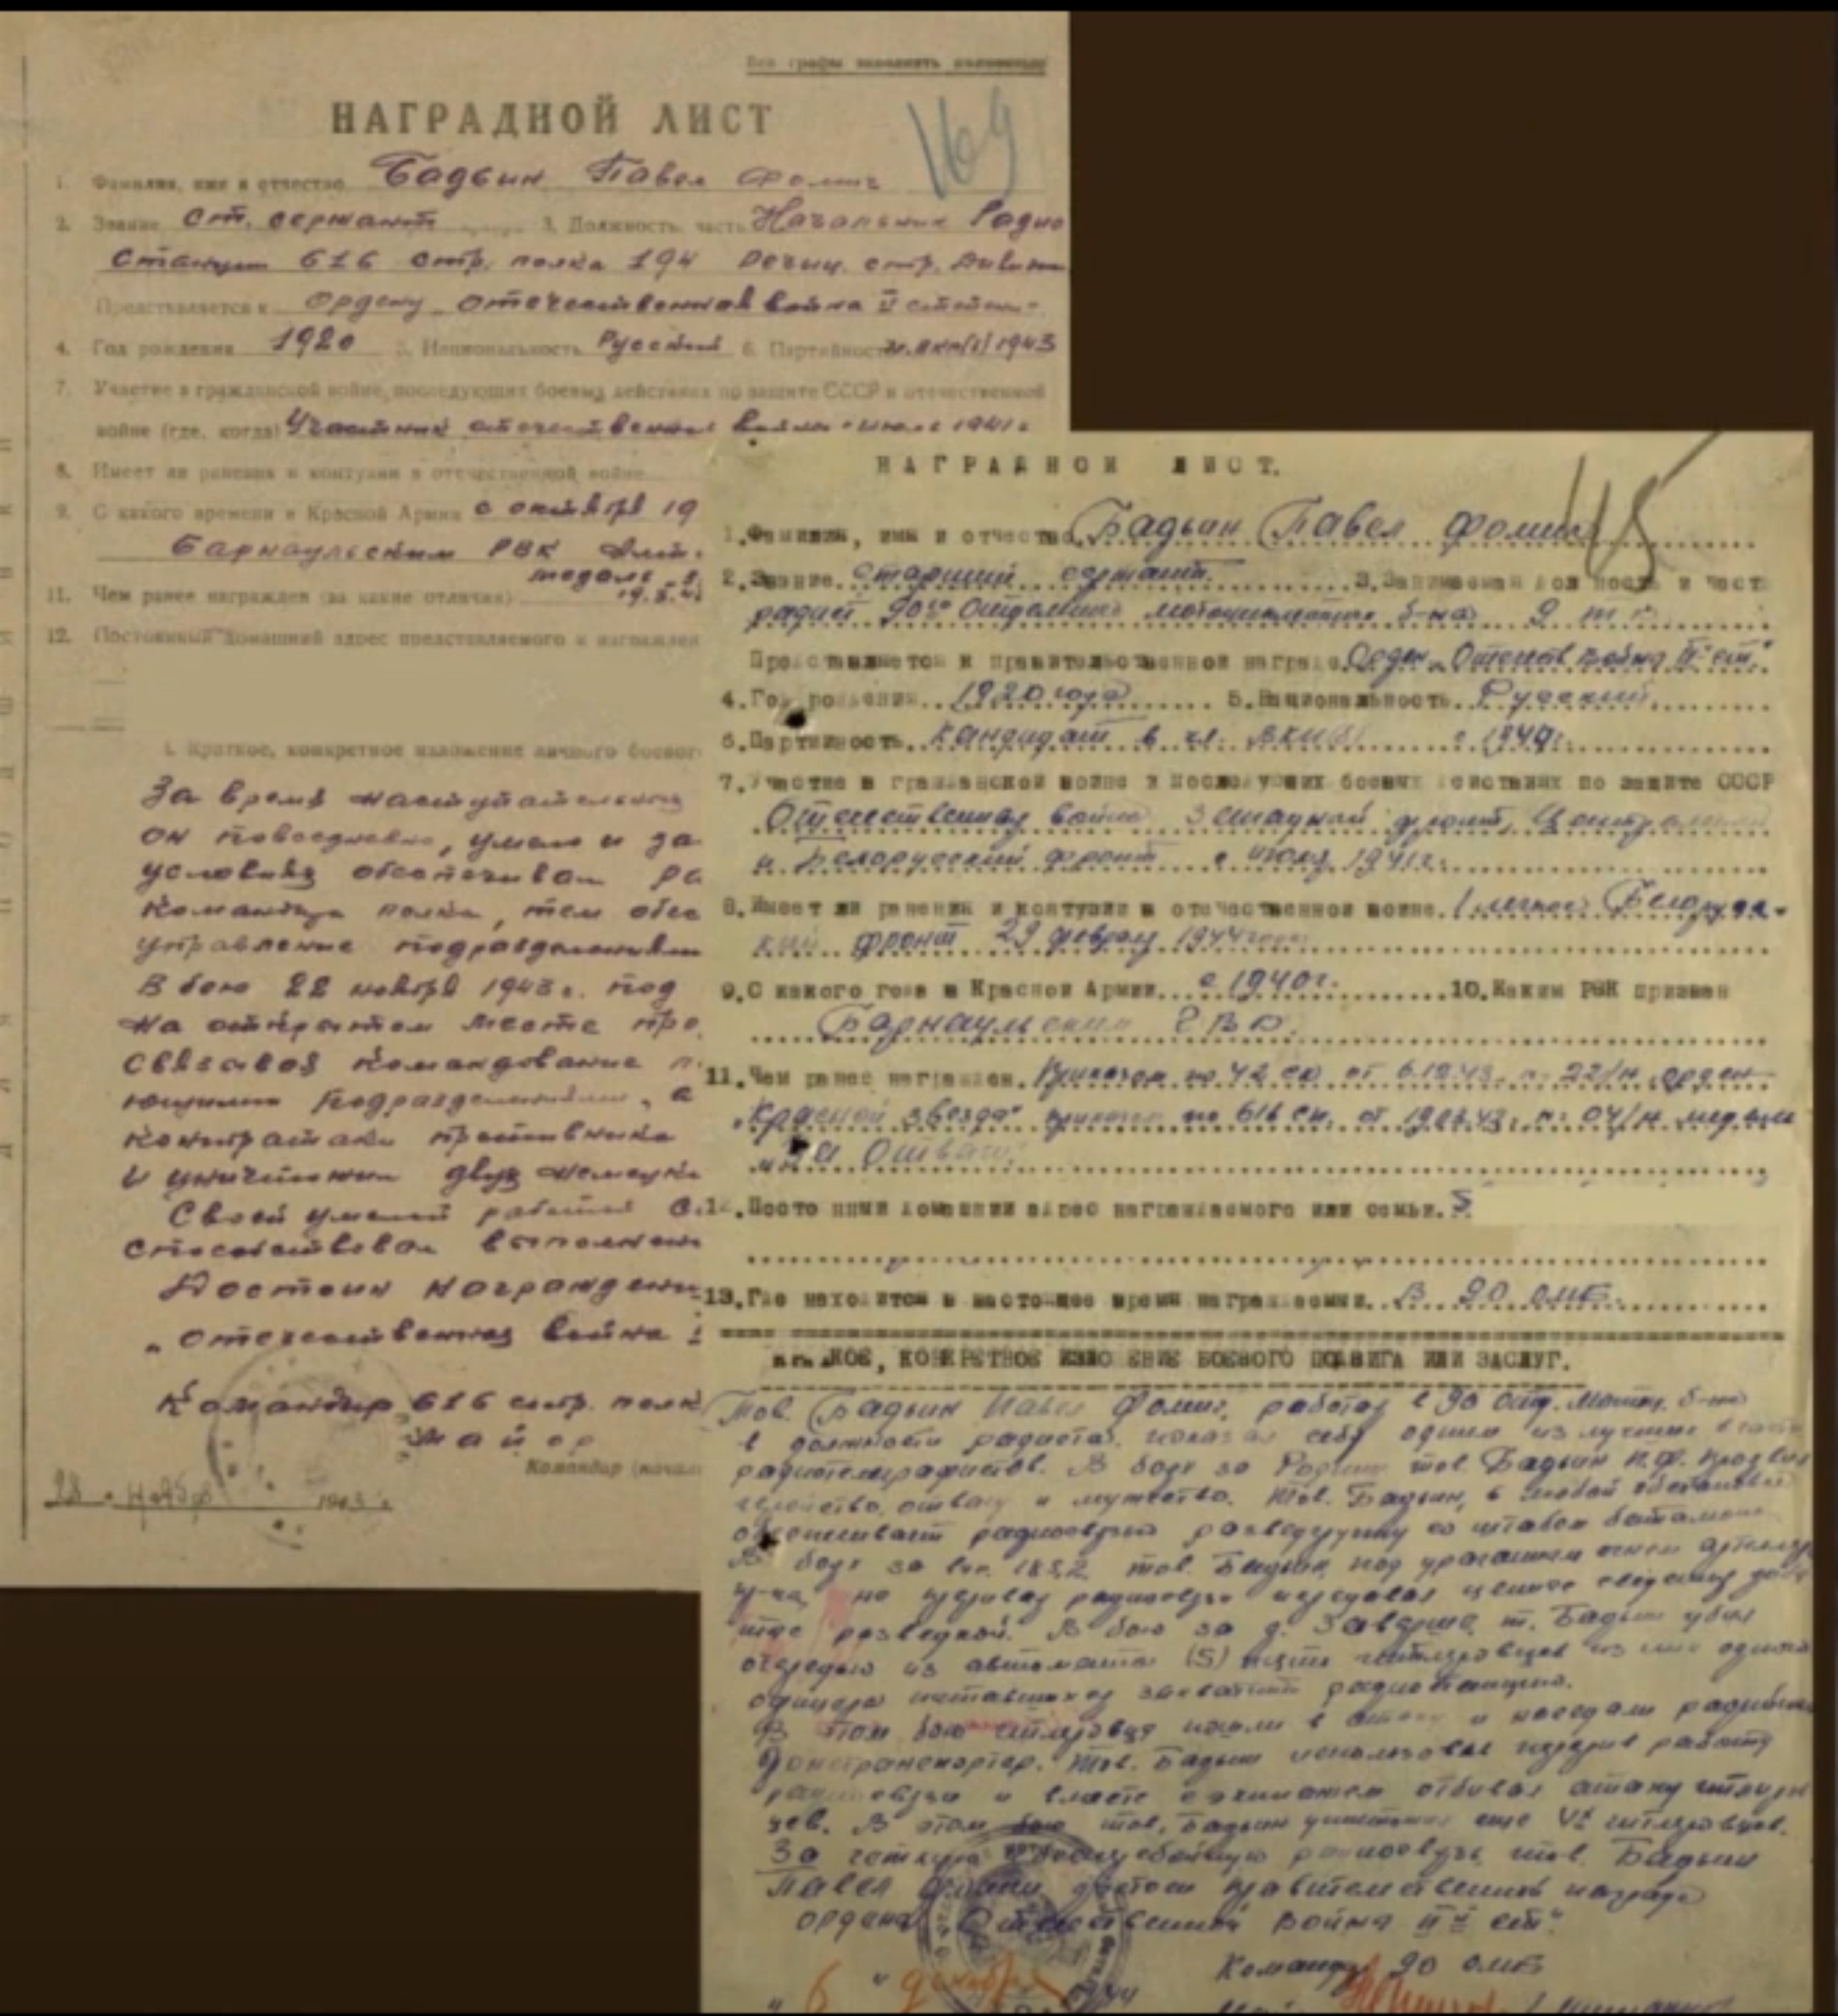 Все графы заполнять полностью
НАГРАДНОЙ ЛИСТ
169
1. Фамилия, имя и отчество Бадьин Павел Фомич
2. Звание ст. сержант 3. Должность, часть Начальник Радио
станции 616 стр. полка 194 Речиц. стр. дивизии
Представляется к Ордену отечественная война II степени
4. Год рождения 1920 5. Национальность Русский 6. Партийность 1943
7. Участие в гражданской войне, последующих боевых действиях по защите СССР и отечественной
войне (где, когда) Участник отечественной войны с июля 1941 г.
8. Имеет ли ранения и контузии в отечественной войне
9. С какого времени в Красной Армии с октября 19
Барнаульским РВК Алт.
медаль
11. Чем ранее награжден (за какие отличия)
12. Постоянный домашний адрес представляемого к награжден
1. Краткое, конкретное изложение личного боевог
За время наступательных
он повседневно, умело и за
условиях обеспечивал ра
Командира полка, тем обес
управление подразделениям
В бою 22 ноября 1943 г. под
на открытом месте про
связывая командование п
ющими подразделениями, а
контратаки противника
и уничтожил двух немецки
Своей умелой работой с
способствовал выполнен
Достоин награждени
„Отечественная война
Командир 616 стр. полк
Майор
Командир (начал
28 ноября 1943 г.
НАГРАДНОЙ ЛИСТ.
1. Фамилия, имя и отчество Бадьин Павел Фомич
2. Звание Старший сержант. 3. Занимаемая должность и часть
радист 90го отдельного мотоциклетного б-на 9 т к.
Представляется к правительственной награде Орден „Отечеств. война II ст."
4. Год рождения 1920 года 5. Национальность Русский
6. Партийность кандидат в чл. ВКП(б) с 194
7. Участие в гражданской войне и последующих боевых действиях по защите СССР
Отечественная война Западный фронт, Центральный
и Белорусский фронт с июля 1941 г.
8. Имеет ли ранения и контузии в отечественной войне. 1 легкое Белорус-
кий фронт 29 февраля 1944
9. С какого года в Красной Армии с 1940 г. 10. Каким РВК призван
Барнаульским РВК.
11. Чем ранее награжден. Приказом по 42 ск от 22/н орден
„Красной звезда" приказом по 616 сп. от 04/н медаль
„За Отвагу"
12. Постоянный домашний адрес награждаемого или семьи.
13. Где находится в настоящее время награждаемый. В 90 омб.
КОЕ, КОНКРЕТНОЕ ИЗЛОЖЕНИЕ БОЕВОГО ПОДВИГА ИЛИ ЗАСЛУГ.
Тов. Бадьин Павел Фомич, работая в 90 отд. мотц. б-не
в должности радиста показал себя одним из лучших в части
радиотелеграфистов. В боях за Родину тов. Бадьин П.Ф. проявил
геройство, отвагу и мужество. Тов. Бадьин, в любой обстановке
обеспечивает радиосвязью разведгруппу со штабом батальона.
В боях за выс. 183,2 тов. Бадьин под ураганным огнем артиллер
пр-ка, не прерывая радиосвязь передавал ценные сведения
разведкой. В бою за д. т. Бадьин убил
очередью из автомата (5) пять гитлеровцев из них одного
офицера пытавшихся захватить радиостанцию.
В том бою гитлеровцы пошли в атаку и наседали на
бронетранспортер. Тов. Бадьин использовал перерыв работы
радиосвязи и вместе с экипажем отбивал атаку гитлеров
цев. В этом бою тов. Бадьин уничтожил еще гитлеровцев.
За четкую и бесперебойную радиосвязь тов. Бадьин
Павел Фомич достоин правительственной награды
ордена „Отечественной война II й ст."
Командир 90 омб
„6" декабря 1944